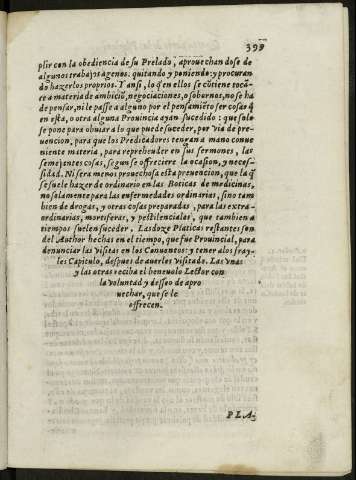 399
plir con la obediencia de su Prelado, aprouechandose de
algunos trabajos agenos. quitando y poniendo: y procuran
do hazerlos proprios. Y ansi, lo q̃ en ellos se cõtiene tocã-
te a materia de ambiciõ, negociaciones, o sobornos, no se ha
de pensar, ni le passe a alguno por el pensamiẽto ser cosas q̃
en esta, o otra alguna Prouincia ayan sucedido: que solo
se pone para obuiar a lo que puede suceder, por via de pre-
uencion, para que los Predicadores tengan a mano conue
niente materia, para reprehender en sus sermones, las
semejantes cosas, segun se offreciere la ocasion, y neces-
sidad. Ni sera menos prouechosa esta preuencion, que la q̃
se suele hazer de ordinario en las Boticas de medicinas,
no solamente para las enfermedades ordinarias, sino tam
bien de drogas, y otras cosas preparadas, para las extra-
ordinarias, mortiferas, y pestilenciales, que tambien a
tiempos suelen suceder. Las doze Platicas restantes son
del Author hechas en el tiempo, que fue Prouincial, para
denunciar las Visitas en los Conuentos: y tener a los fray-
les Capitulo, despues de auerlos visitado. Las vnas
y las otras reciba el beneuolo Lector con
la voluntad y desseo de apro
uechar, que se le
offrecen.
PLA-